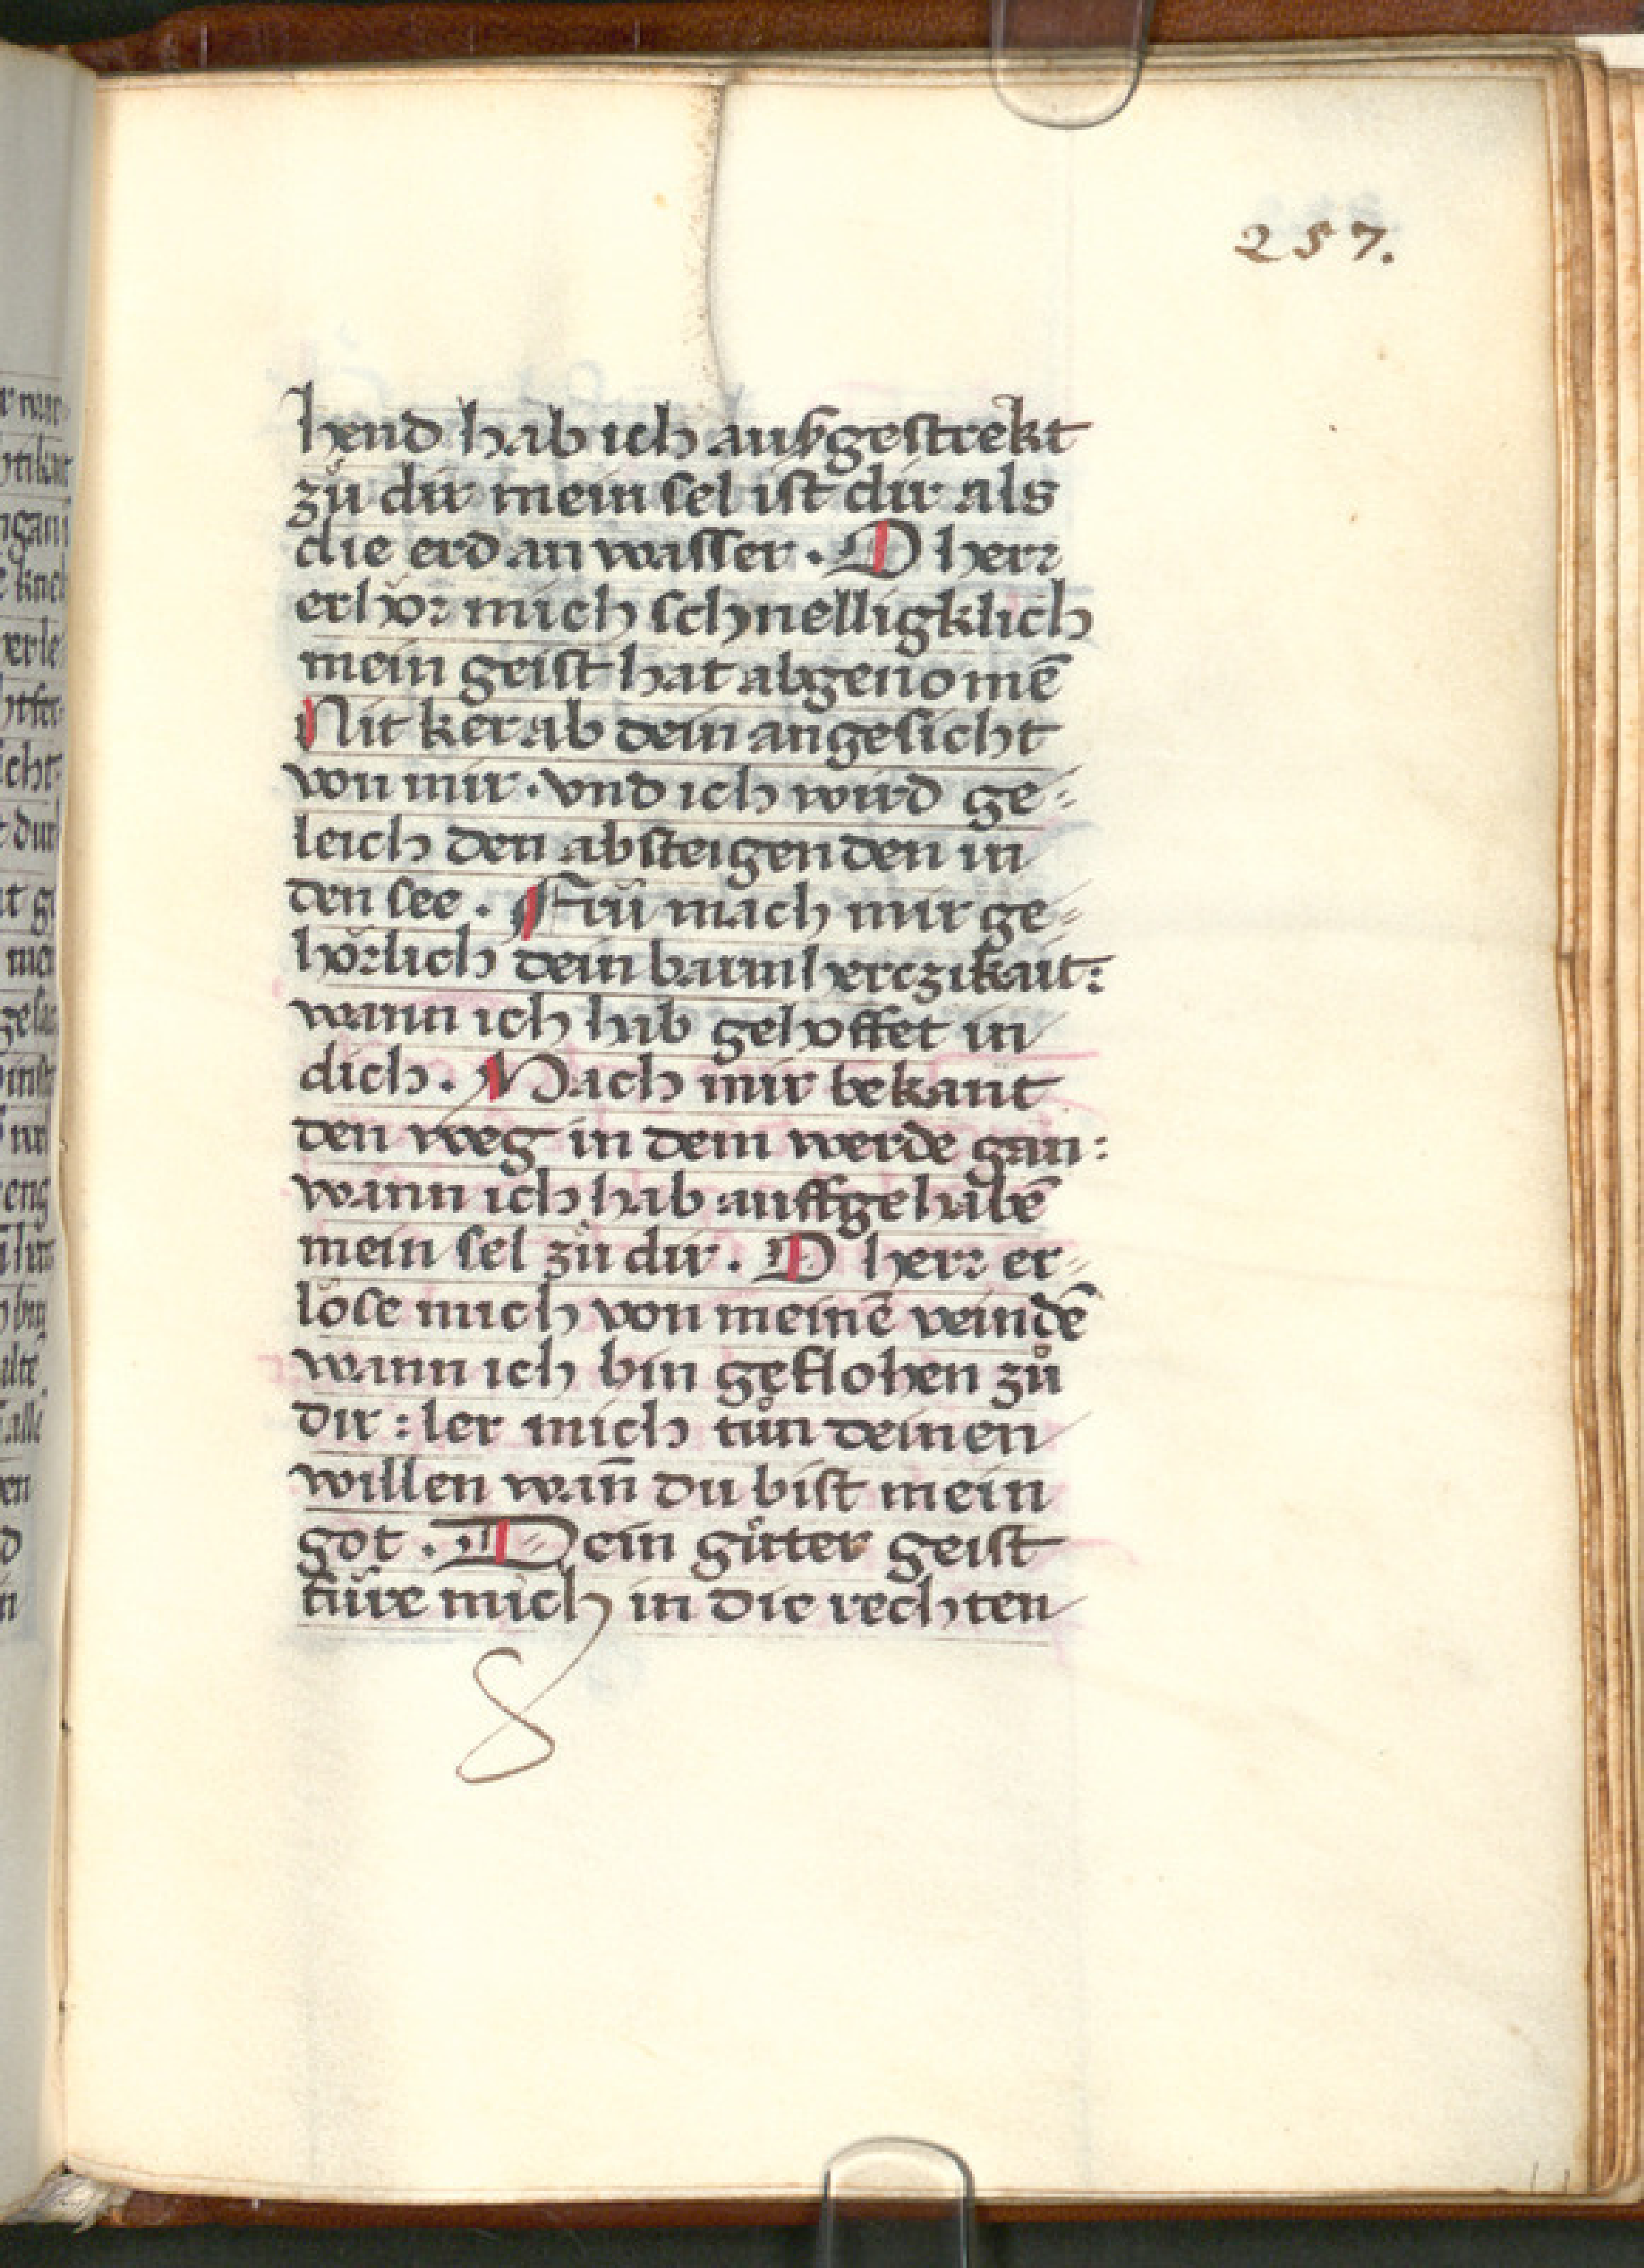 257.
hend hab ich außgestrekt
zů dir mein sel ist dir als
die erd an wasser · O herr
erhör mich schnelligklich
mein geist hat abgenomē
Nit ker ab dein angesicht
von mir · vnd ich wird ge⸗
leich den absteigenden in
den see · Frü mach mir ge⸗
hörlich dein barmherczikait:
wann ich hab gehoffet in
dich · Mach mir bekant
den weg in dem werde gan:
wann ich hab auffgehabē
mein sel zů dir · O herr er⸗
löse mich von meinē veindē
wann ich bin geflohen zů
dir : ler mich tůn deinen
willen wañ du bist mein
got · Dein gůtter geist
füre mich in die rechten